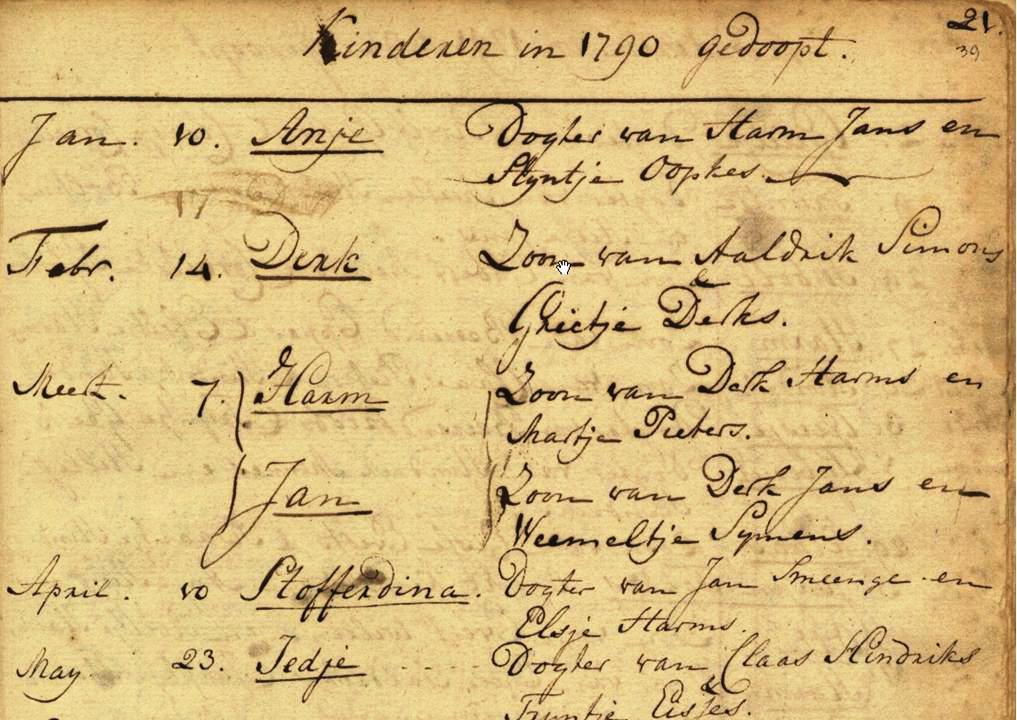 21.
39
Kinderen in 1790 gedoopt.
Jan. 10. Anje Dogter van Harm Jans en
Styntje Oopkes.
17
Febr. 14. Derk Zoon van Aaldrik Simons
&
Grietje Derks.
Meert. 7. Harm Zoon van Derk Harms en
Martje Pieters.
Jan Zoon van Derk Jans en
Weemeltje Symens.
April. 10 Stofferdina. Dogter van Jan Smeenge en
Elsje Harms.
May 23. Jedje Dogter van Claas Hindriks
&
Truntje Eisses.